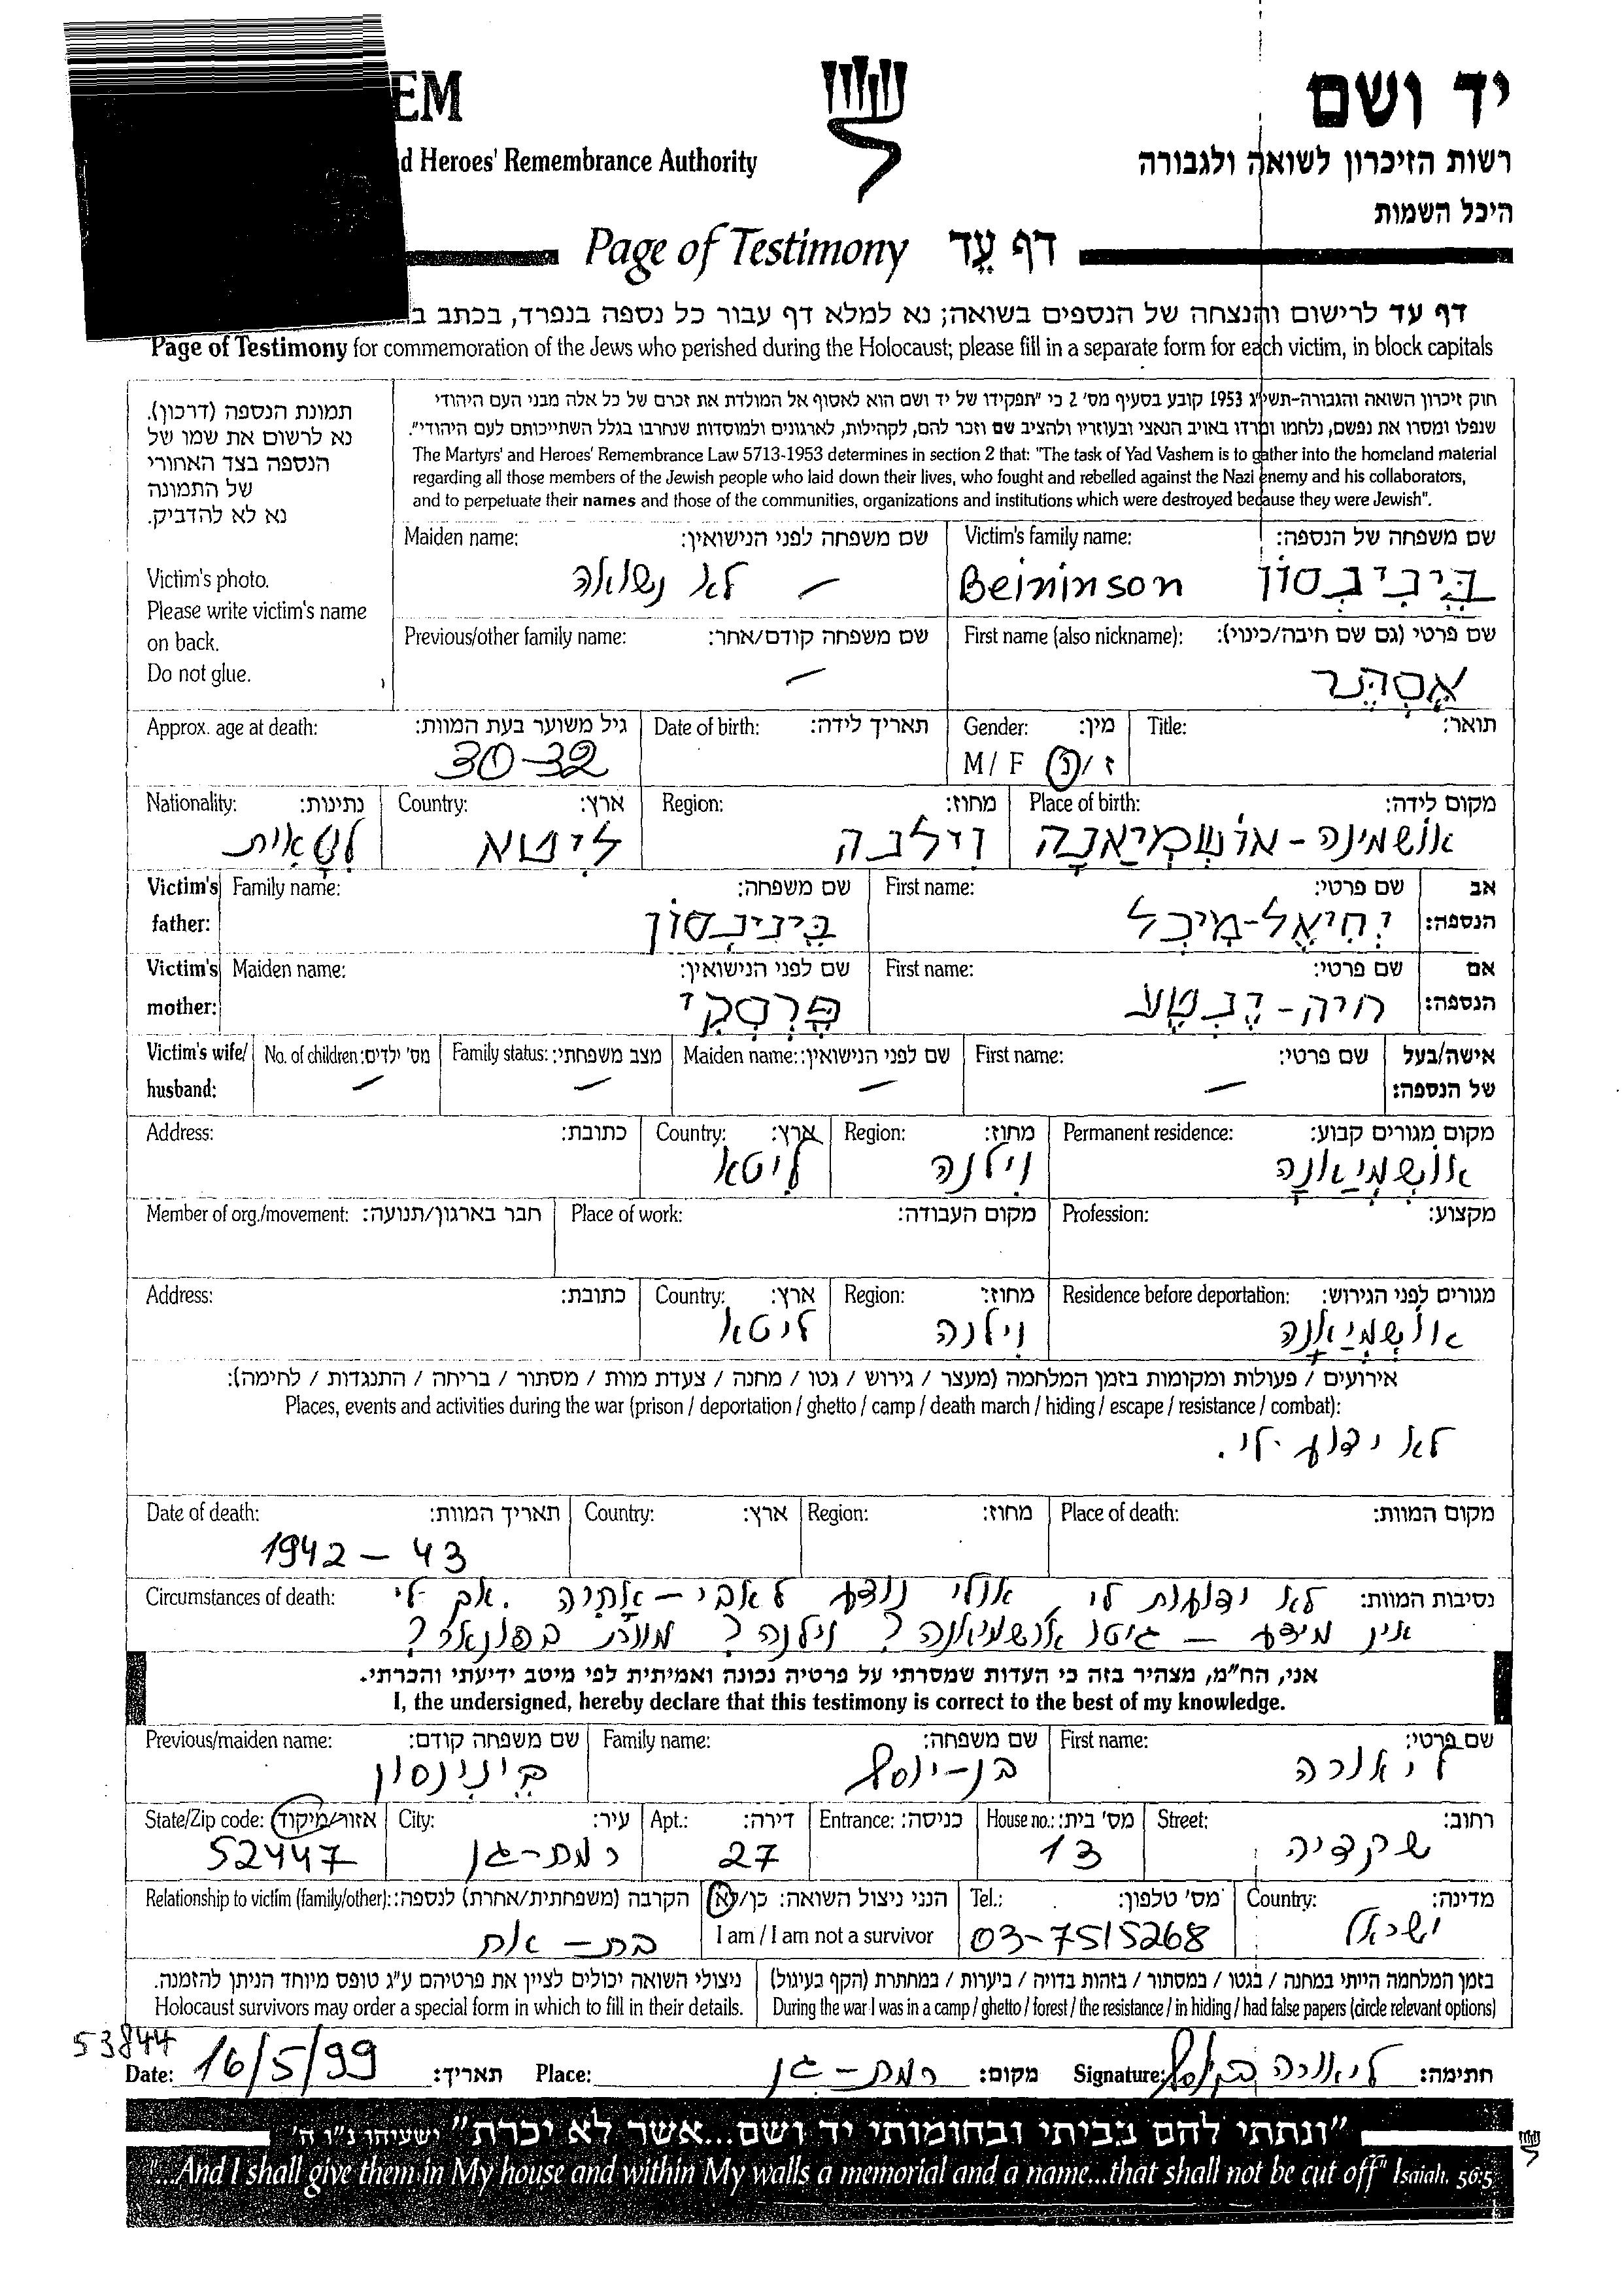 EM
יד ושם
d Heroes' Remembrance Authority
רשות הזיכרון לשואה ולגבורה
היכל השמות
Page of Testimony דף עֵד
דף עד לרישום והנצחה של הנספים בשואה; נא למלא דף עבור כל נספה בנפרד, בכתב ב
Page of Testimony for commemoration of the Jews who perished during the Holocaust; please fill in a separate form for each victim, in block capitals
תמונת הנספה (דרכון).
נא לרשום את שמו של
הנספה בצד האחורי
של התמונה
נא לא להדביק.
Victim's photo.
Please write victim's name
on back.
Do not glue.
חוק זיכרון השואה והגבורה-תשי"ג 1953 קובע בסעיף מס' 2 כי "תפקידו של יד ושם הוא לאסוף אל המולדת את זכרם של כל אלה מבני העם היהודי
שנפלו ומסרו את נפשם, נלחמו ומרדו באויב הנאצי ובעוזריו ולהציב שם וזכר להם, לקהילות, לארגונים ולמוסדות שנחרבו בגלל השתייכותם לעם היהודי".
The Martyrs' and Heroes' Remembrance Law 5713-1953 determines in section 2 that: "The task of Yad Vashem is to gather into the homeland material
regarding all those members of the Jewish people who laid down their lives, who fought and rebelled against the Nazi enemy and his collaborators,
and to perpetuate their names and those of the communities, organizations and institutions which were destroyed because they were Jewish".
Maiden name: שם משפחה לפני הנישואין: Victim's family name: שם משפחה של הנספה:
לא נשואה – Beininson בֵּינִינְסוֹן
Previous/other family name: שם משפחה קודם/אחר: First name (also nickname): שם פרטי (גם שם חיבה/כינוי):
– אֶסְתֵּר
Approx. age at death: גיל משוער בעת המוות: Date of birth: תאריך לידה: Gender: מין: Title: תואר:
30-32 M / F ז / נ
Nationality: נתינות: Country: ארץ: Region: מחוז: Place of birth: מקום לידה:
לִטָאִית ליטא וילנה אושמינה - אוֹשְׁמְיַאנָה
Victim's father: Family name: שם משפחה: First name: שם פרטי: אב הנספה:
בֵּינִינְסוֹן יְחִיאֶל-מִיכְל
Victim's mother: Maiden name: שם לפני הנישואין: First name: שם פרטי: אם הנספה:
פֶּרֶסְקִי חיה-יֶנְטָע
Victim's wife/ husband: No. of children: מס' ילדים: Family status: מצב משפחתי: Maiden name: שם לפני הנישואין: First name: שם פרטי: אישה/בעל של הנספה:
– – – –
Address: כתובת: Country: ארץ: Region: מחוז: Permanent residence: מקום מגורים קבוע:
ליטא וילנה אוֹשְׁמְיַאנָה
Member of org./movement: חבר בארגון/תנועה: Place of work: מקום העבודה: Profession: מקצוע:
Address: כתובת: Country: ארץ: Region: מחוז: Residence before deportation: מגורים לפני הגירוש:
ליטא וילנה אוֹשְׁמְיַאנָה
אירועים / פעולות ומקומות בזמן המלחמה (מעצר / גירוש / גטו / מחנה / צעדת מוות / מסתור / בריחה / התנגדות / לחימה):
Places, events and activities during the war (prison / deportation / ghetto / camp / death march / hiding / escape / resistance / combat):
לא ידוע לי.
Date of death: תאריך המוות: Country: ארץ: Region: מחוז: Place of death: מקום המוות:
1942 – 43
Circumstances of death: נסיבות המוות: לא ידועות לי, אולי נודע לאבי – אחיה. אך לי
אין מידע – גיטו אושמיאנה? וילנה? בפונאר?
אני, הח"מ, מצהיר בזה כי העדות שמסרתי על פרטיה נכונה ואמיתית לפי מיטב ידיעתי והכרתי.
I, the undersigned, hereby declare that this testimony is correct to the best of my knowledge.
Previous/maiden name: שם משפחה קודם: Family name: שם משפחה: First name: שם פרטי:
בֵּינִינְסוֹן בן-יוסף ליאורה
State/Zip code: אזור/מיקוד City: עיר: Apt.: דירה: Entrance: כניסה: House no.: מס' בית: Street: רחוב:
52447 רמת-גן 27 13 שקדיה
Relationship to victim (family/other): הקרבה (משפחתית/אחרת) לנספה: הנני ניצול השואה: כן/לא Tel.: מס' טלפון: Country: מדינה:
בת – אח I am / I am not a survivor 03-7515268 ישראל
ניצולי השואה יכולים לציין את פרטיהם ע"ג טופס מיוחד הניתן להזמנה.
Holocaust survivors may order a special form in which to fill in their details.
בזמן המלחמה הייתי במחנה / בגטו / במסתור / בזהות בדויה / ביערות / במחתרת (הקף בעיגול)
During the war I was in a camp / ghetto / forest / the resistance / in hiding / had false papers (circle relevant options)
53844
Date: 16/5/99 תאריך: Place: רמת-גן מקום: Signature: ליאורה בן יוסף חתימה:
"ונתתי להם בביתי ובחומותי יד ושם...אשר לא יכרת" ישעיהו נ"ו ה'
"...And I shall give them in My house and within My walls a memorial and a name...that shall not be cut off" Isaiah, 56:5